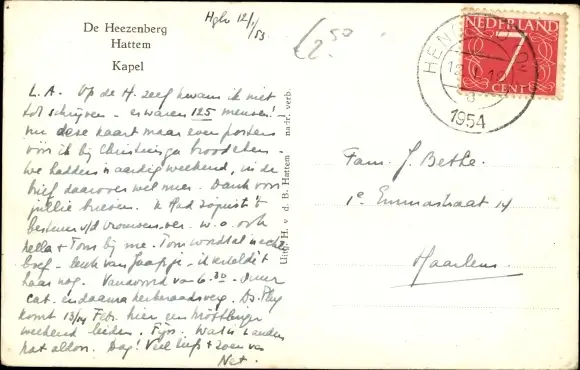 De Heezenberg
Hattem
Kapel
Hglo 12/1/53
£2.50
NEDERLAND
7
CENT
HENG
1954
L.A. Op de H. zeeg kwam ik niet
tot schrijven – er waren 125 mensen!
nu deze kaart maar even posten
vóór ik bij Christina ga
We hadden 'n aardig weekend, in de
brief daarover wel meer. Dank voor
jullie brieven. Ik had zojuist 't
bestuur v/d vrouwenver. w.o. ook
Nella + Toms bij me. Tom wordt al
boef – leuk van Jaapje – ik vertelde 't
haar nog. Vanavond van 6.30 – uur
cat. en daarna kerkeraadsverg. Ds. Pluy
komt 13/14 Febr. hier een
weekend leiden. Fijn. Wat is anders
nat aldoor. Dag! Veel liefs + zoen van
Net.
Uitg. H. v. d. B. Hattem nadr. verb.
Fam. J. Bethe.
1e Emmastraat 14
Haarlem